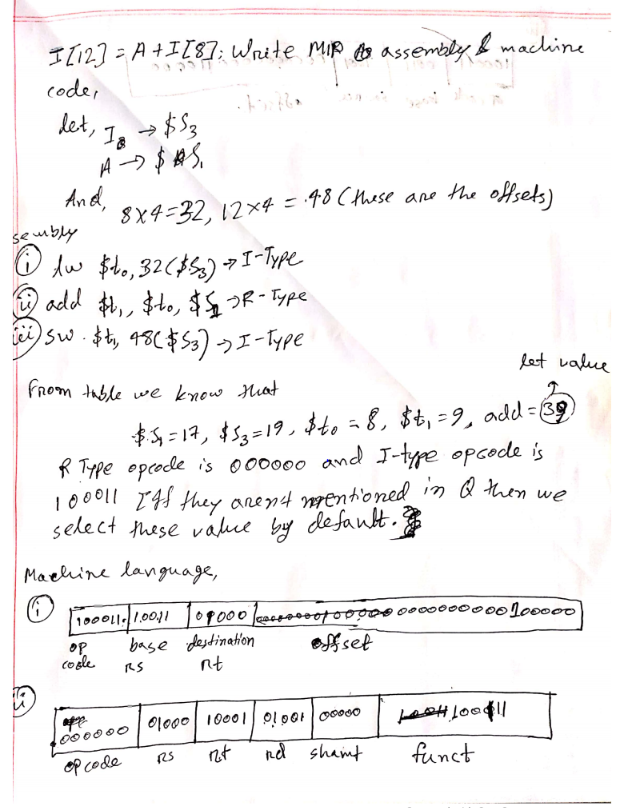 I[12] = A + I[8]; Write MIP assembly & machine
code,
let, I → $S3
A → $S1
And, 8×4=32, 12×4 = 48 (these are the offsets)
sembly
i lw $t0, 32($S3) → I-Type
ii add $t1, $t0, $S1 → R-Type
iii sw $t1, 48($S3) → I-Type
let value
From table we know that
$S1 = 17, $S3 = 19, $t0 = 8, $t1 = 9, add = 39
R Type opcode is 000000 and I-type opcode is
100011 If they arent mentioned in Q then we
select these value by default.
Machine language,
i 100011 10011 01000 0000000000100000
op code base rs destination rt offset
ii 000000 01000 10001 01001 00000 100111
opcode rs rt rd shamt funct